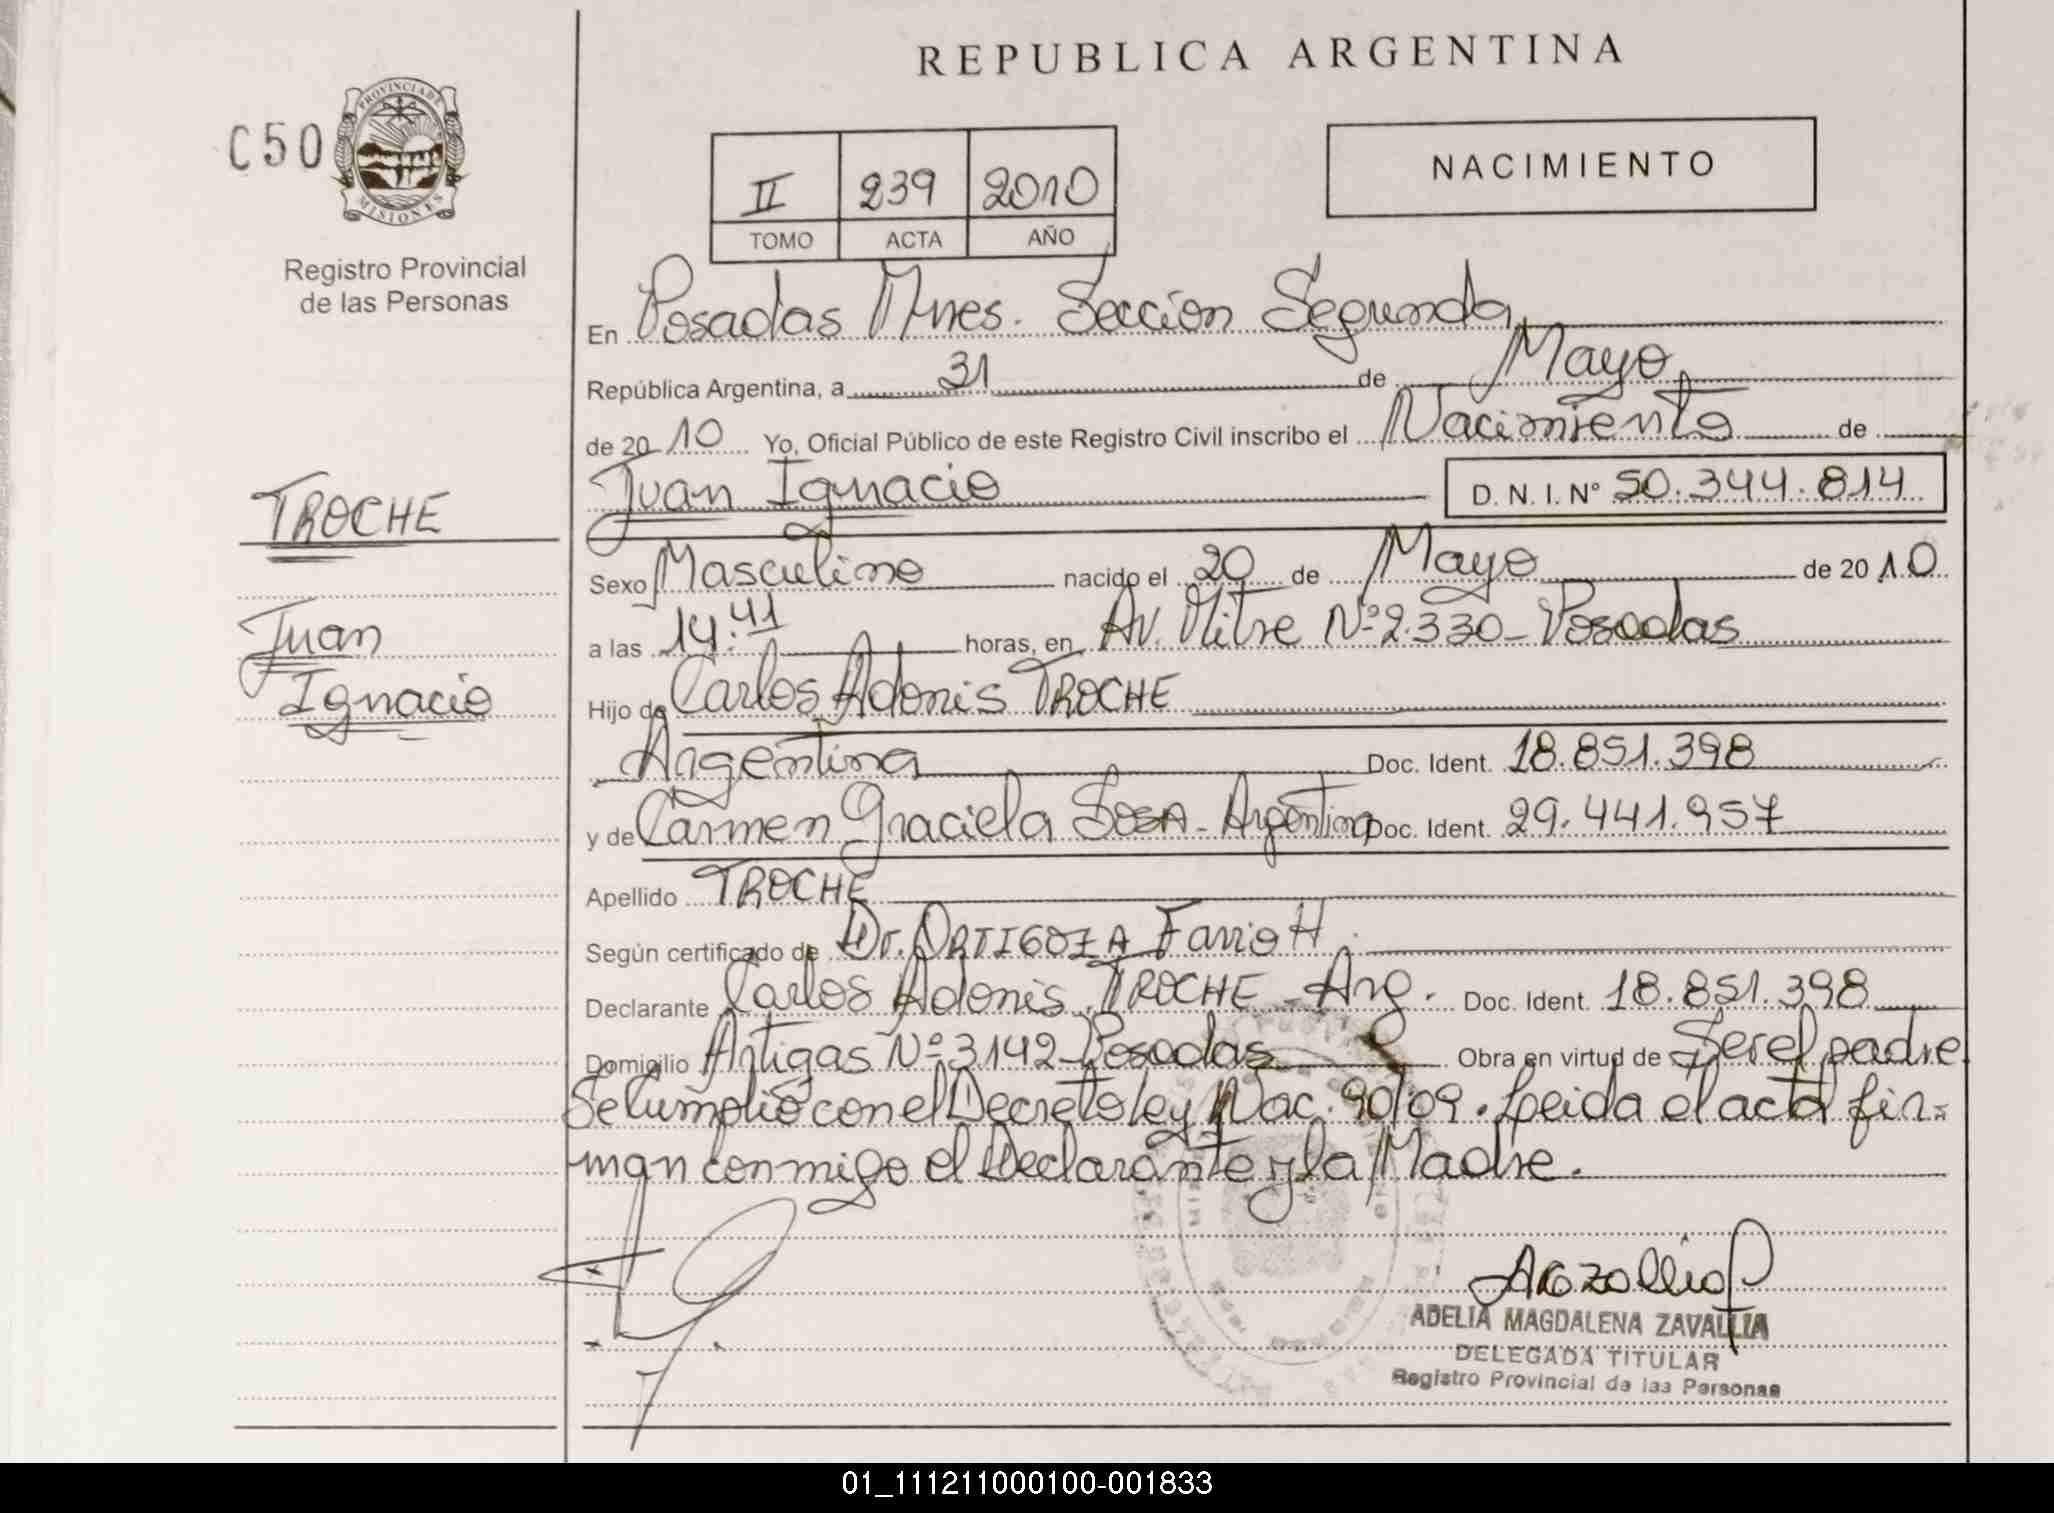 REPUBLICA ARGENTINA
C50
PROVINCIA DE
MISIONES
Registro Provincial
de las Personas
II 239 2010
TOMO ACTA AÑO
NACIMIENTO
En Posadas Mnes. Sección Segunda
República Argentina, a 31 de Mayo
de 2010 Yo, Oficial Público de este Registro Civil inscribo el Nacimiento de
Juan Ignacio D. N. I. N° 50.344.814
TROCHE
Juan
Ignacio
Sexo Masculino nacido el 20 de Mayo de 2010
a las 14:41 horas, en Av. Mitre Nº 2.330 - Posadas
Hijo de Carlos Adonis TROCHE
Argentina Doc. Ident. 18.851.398
y de Carmen Graciela SOSA - Argentina Doc. Ident. 29.441.957
Apellido TROCHE
Según certificado de Dr. ORTIGOZA H.
Declarante Carlos Adonis TROCHE - Arg. Doc. Ident. 18.851.398
Domicilio Artigas Nº 3142 - Posadas Obra en virtud de Ser el padre
Se Cumplió con el Decreto ley Nac. 90/09. Leida el acta fir-
man conmigo el Declarante y la Madre.
ADELIA MAGDALENA ZAVALLIA
DELEGADA TITULAR
Registro Provincial de las Personas
01_111211000100-001833